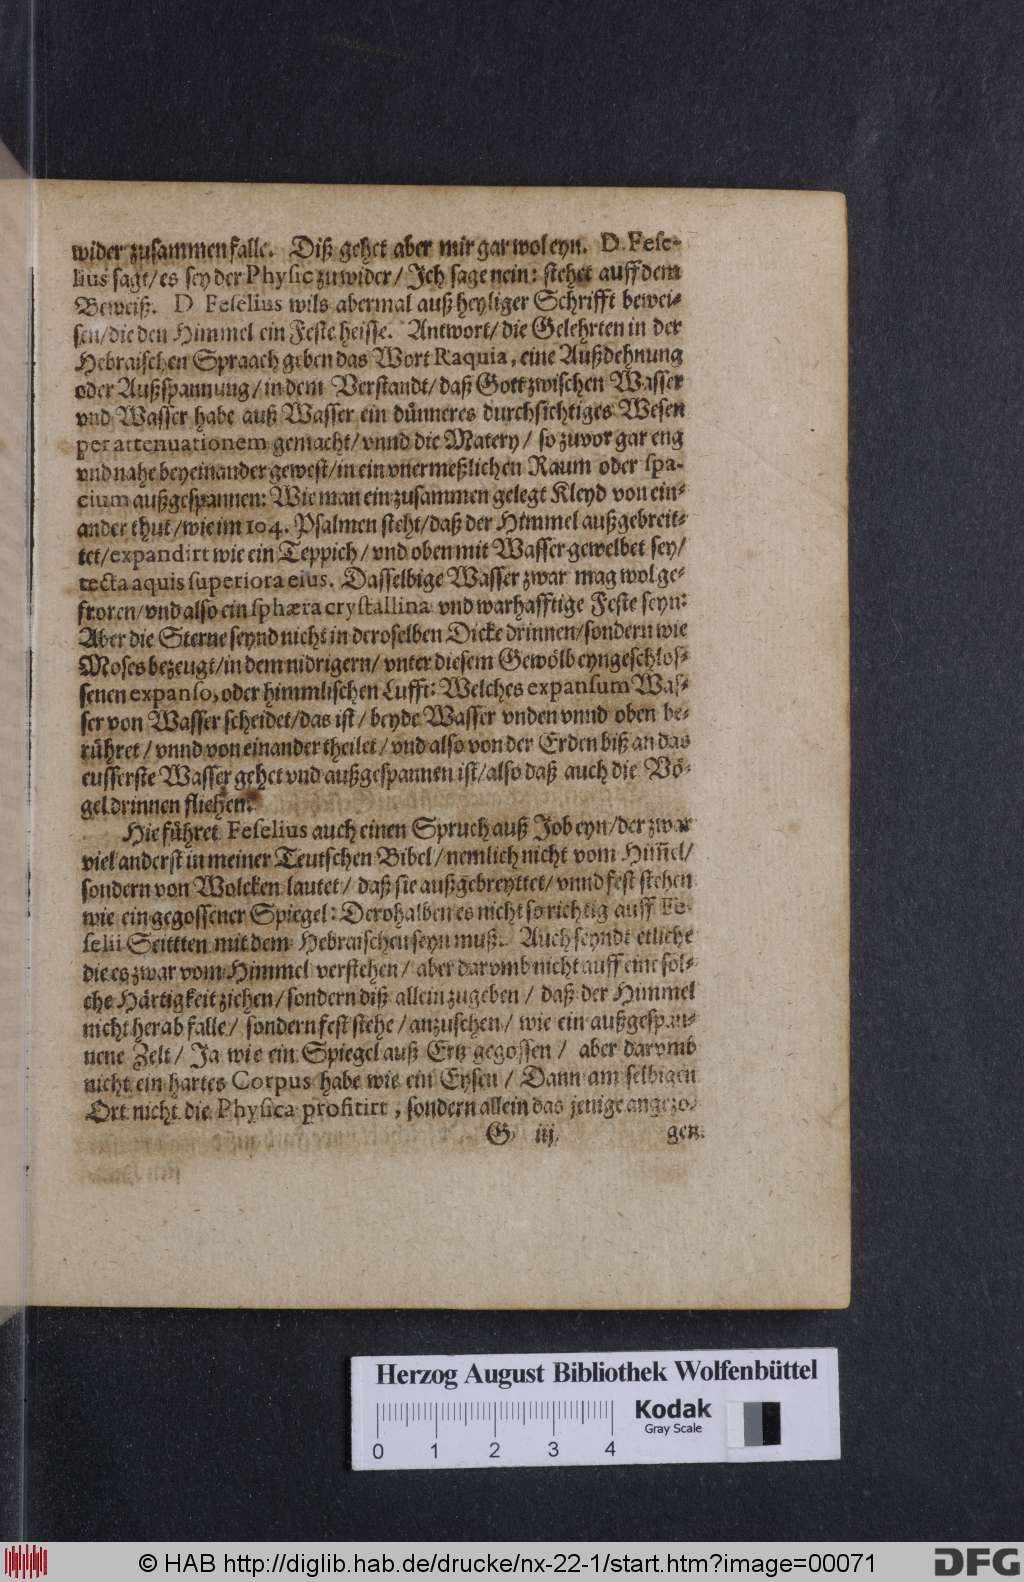 wider zusammen falle. Diß gehet aber mir gar wol eyn. D. Fese-
lius sagt/ es sey der Physic zuwider/ Ich sage nein: stehet auff dem
Beweiß. D Feselius wils abermal auß heyliger Schrifft bewei-
sen/ die den Himmel ein Feste heisse. Antwort/ die Gelehrten in der
Hebraischen Spraach geben das Wort Raquia, eine Außdehnung
oder Außspannung/ in dem Verstandt/ daß Gott zwischen Wasser
vnd Wasser habe auß Wasser ein dünneres durchsichtiges Wesen
per attenuationem gemacht/ vnnd die Matery/ so zuvor gar eng
vnd nahe beyeinander gewest/ in ein vnermeßlichen Raum oder spa-
cium außgespannen: Wie man ein zusammen gelegt Kleyd von ein-
ander thut/ wie im 104. Psalmen steht/ daß der Himmel außgebreit-
tet/ expandirt wie ein Teppich/ vnd oben mit Wasser gewelbet sey/
tecta aquis superiora eius. Dasselbige Wasser zwar mag wol ge-
froren/ vnd also ein sphæra crystallina vnd warhafftige Feste seyn:
Aber die Sterne seynd nicht in deroselben Dicke drinnen/ sondern wie
Moses bezeugt/ in dem nidrigern/ vnter diesem Gewölb eyngeschlos-
senen expanso, oder himmlischen Lufft: Welches expansum Was-
ser von Wasser scheidet/ das ist/ beyde Wasser vnden vnnd oben be-
rühret/ vnnd von einander theilet/ vnd also von der Erden biß an das
eusserste Wasser gehet vnd außgespannen ist/ also daß auch die Vö-
gel drinnen fliehen.
Hie führet Feselius auch einen Spruch auß Job eyn/ der zwar
viel anderst in meiner Teutschen Bibel/ nemlich nicht vom Him̃el/
sondern von Wolcken lautet/ daß sie außgebreyttet/ vnnd fest stehen
wie ein gegossener Spiegel: Derohalben es nicht so richtig auff Fe-
selii Seittten mit dem Hebraischen seyn muß. Auch seyndt etliche
die es zwar vom Himmel verstehen/ aber darvmb nicht auff eine sol-
che Härtigkeit ziehen/ sondern diß allein zugeben/ daß der Himmel
nicht herab falle/ sondern fest stehe/ anzusehen/ wie ein außgespan-
nene Zelt/ Ja wie ein Spiegel auß Ertz gegossen/ aber darvmb
nicht ein hartes Corpus habe wie ein Eysen/ Dann am selbigen
Ort nicht die Physica profitirt, sondern allein das jenige angezo-
G iij gen.
Herzog August Bibliothek Wolfenbüttel
Kodak
Gray Scale
0 1 2 3 4
© HAB http://diglib.hab.de/drucke/nx-22-1/start.htm?image=00071
DFG